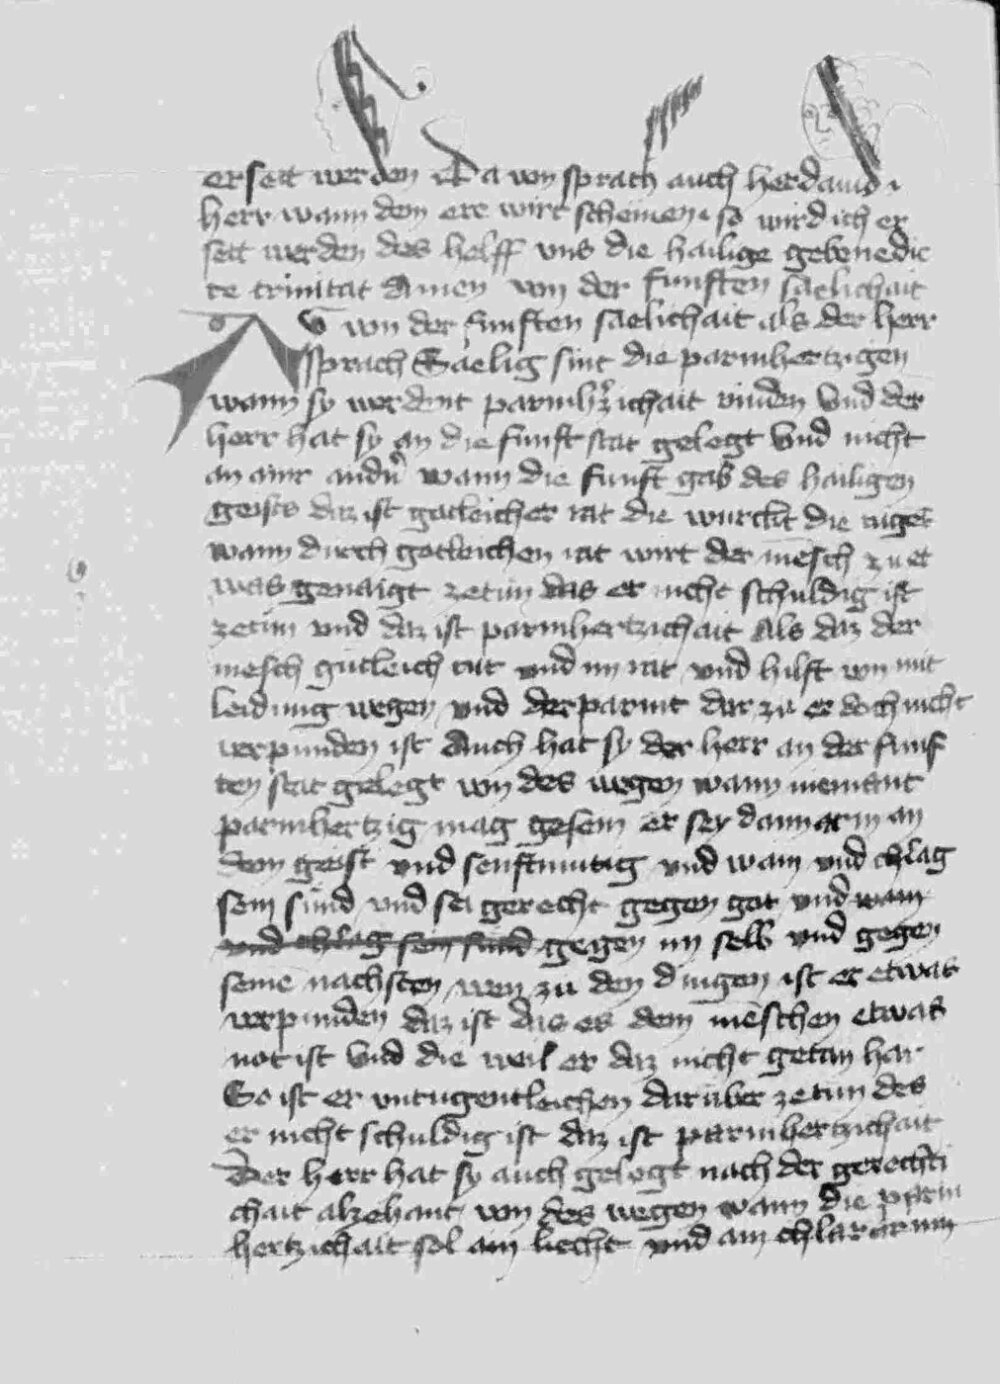 ersett werden Da von sprach auch her dauid
herr wann dein ere wirt scheinen so wird ich er
sett werden des helff vns die hailige gebenedic
te trinitat Amen von der funften saelichait
Av von der funften saelichait als der herr
sprach Saelig sint die parmhertzigen
wann sy werdent parmhrzichait vinden Vnd der
herr hat sy an die funft stat gelegt Vnd nicht
an ainr andn wann die funft gab des hailigen
geists daz ist gotleicher rat die wurcht die tuget
wann durch gotleichen rat wirt der mesch zu et
was genaigt zetun das er nicht schuldig ist
zetun vnd daz ist parmhertzichait Als daz der
mesch gutleich tut vnd im rat vnd hilft von mit
leidung wegen vnd derparmt dar zu er doch nicht
verpunden ist Auch hat sy der herr an der funf
ten stat gelegt von des wegen wann niemant
parmhertzig mag gesein er sey dann arm an
dem geist vnd senftmutig vnd wain vnd chlag
sein sund vnd sei gerecht gegen got vnd wain
vnd chlag sein sund gegen im selb vnd gegen
seine nachsten wen zu den dingen ist er etwas
verpunden daz ist das es dem meschen etwas
not ist Vnd die weil er daz nicht getan hat
So ist er vntugentleichen daruber zetun des
er nicht schuldig ist daz ist parmhertzichait
Der herr hat sy auch gelegt nach der gerechti
chait alzehant von des wegen wann die parm
hertzichait sol ain liecht vnd ain chlarar